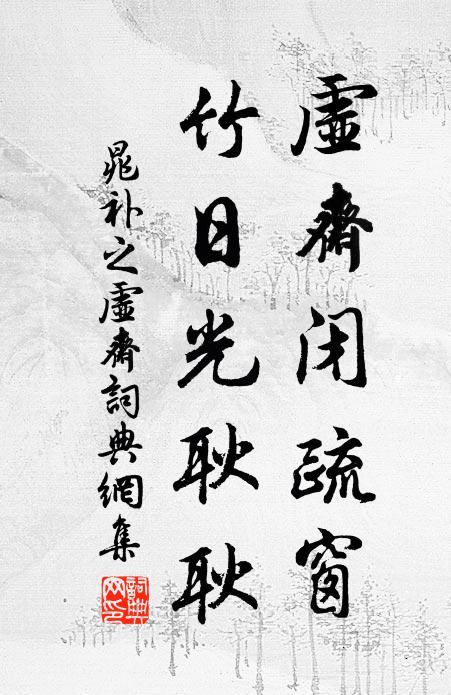 虛齋閉疏窗
竹日光耿耿
晁补之虛齋詞典網集
詞典網印